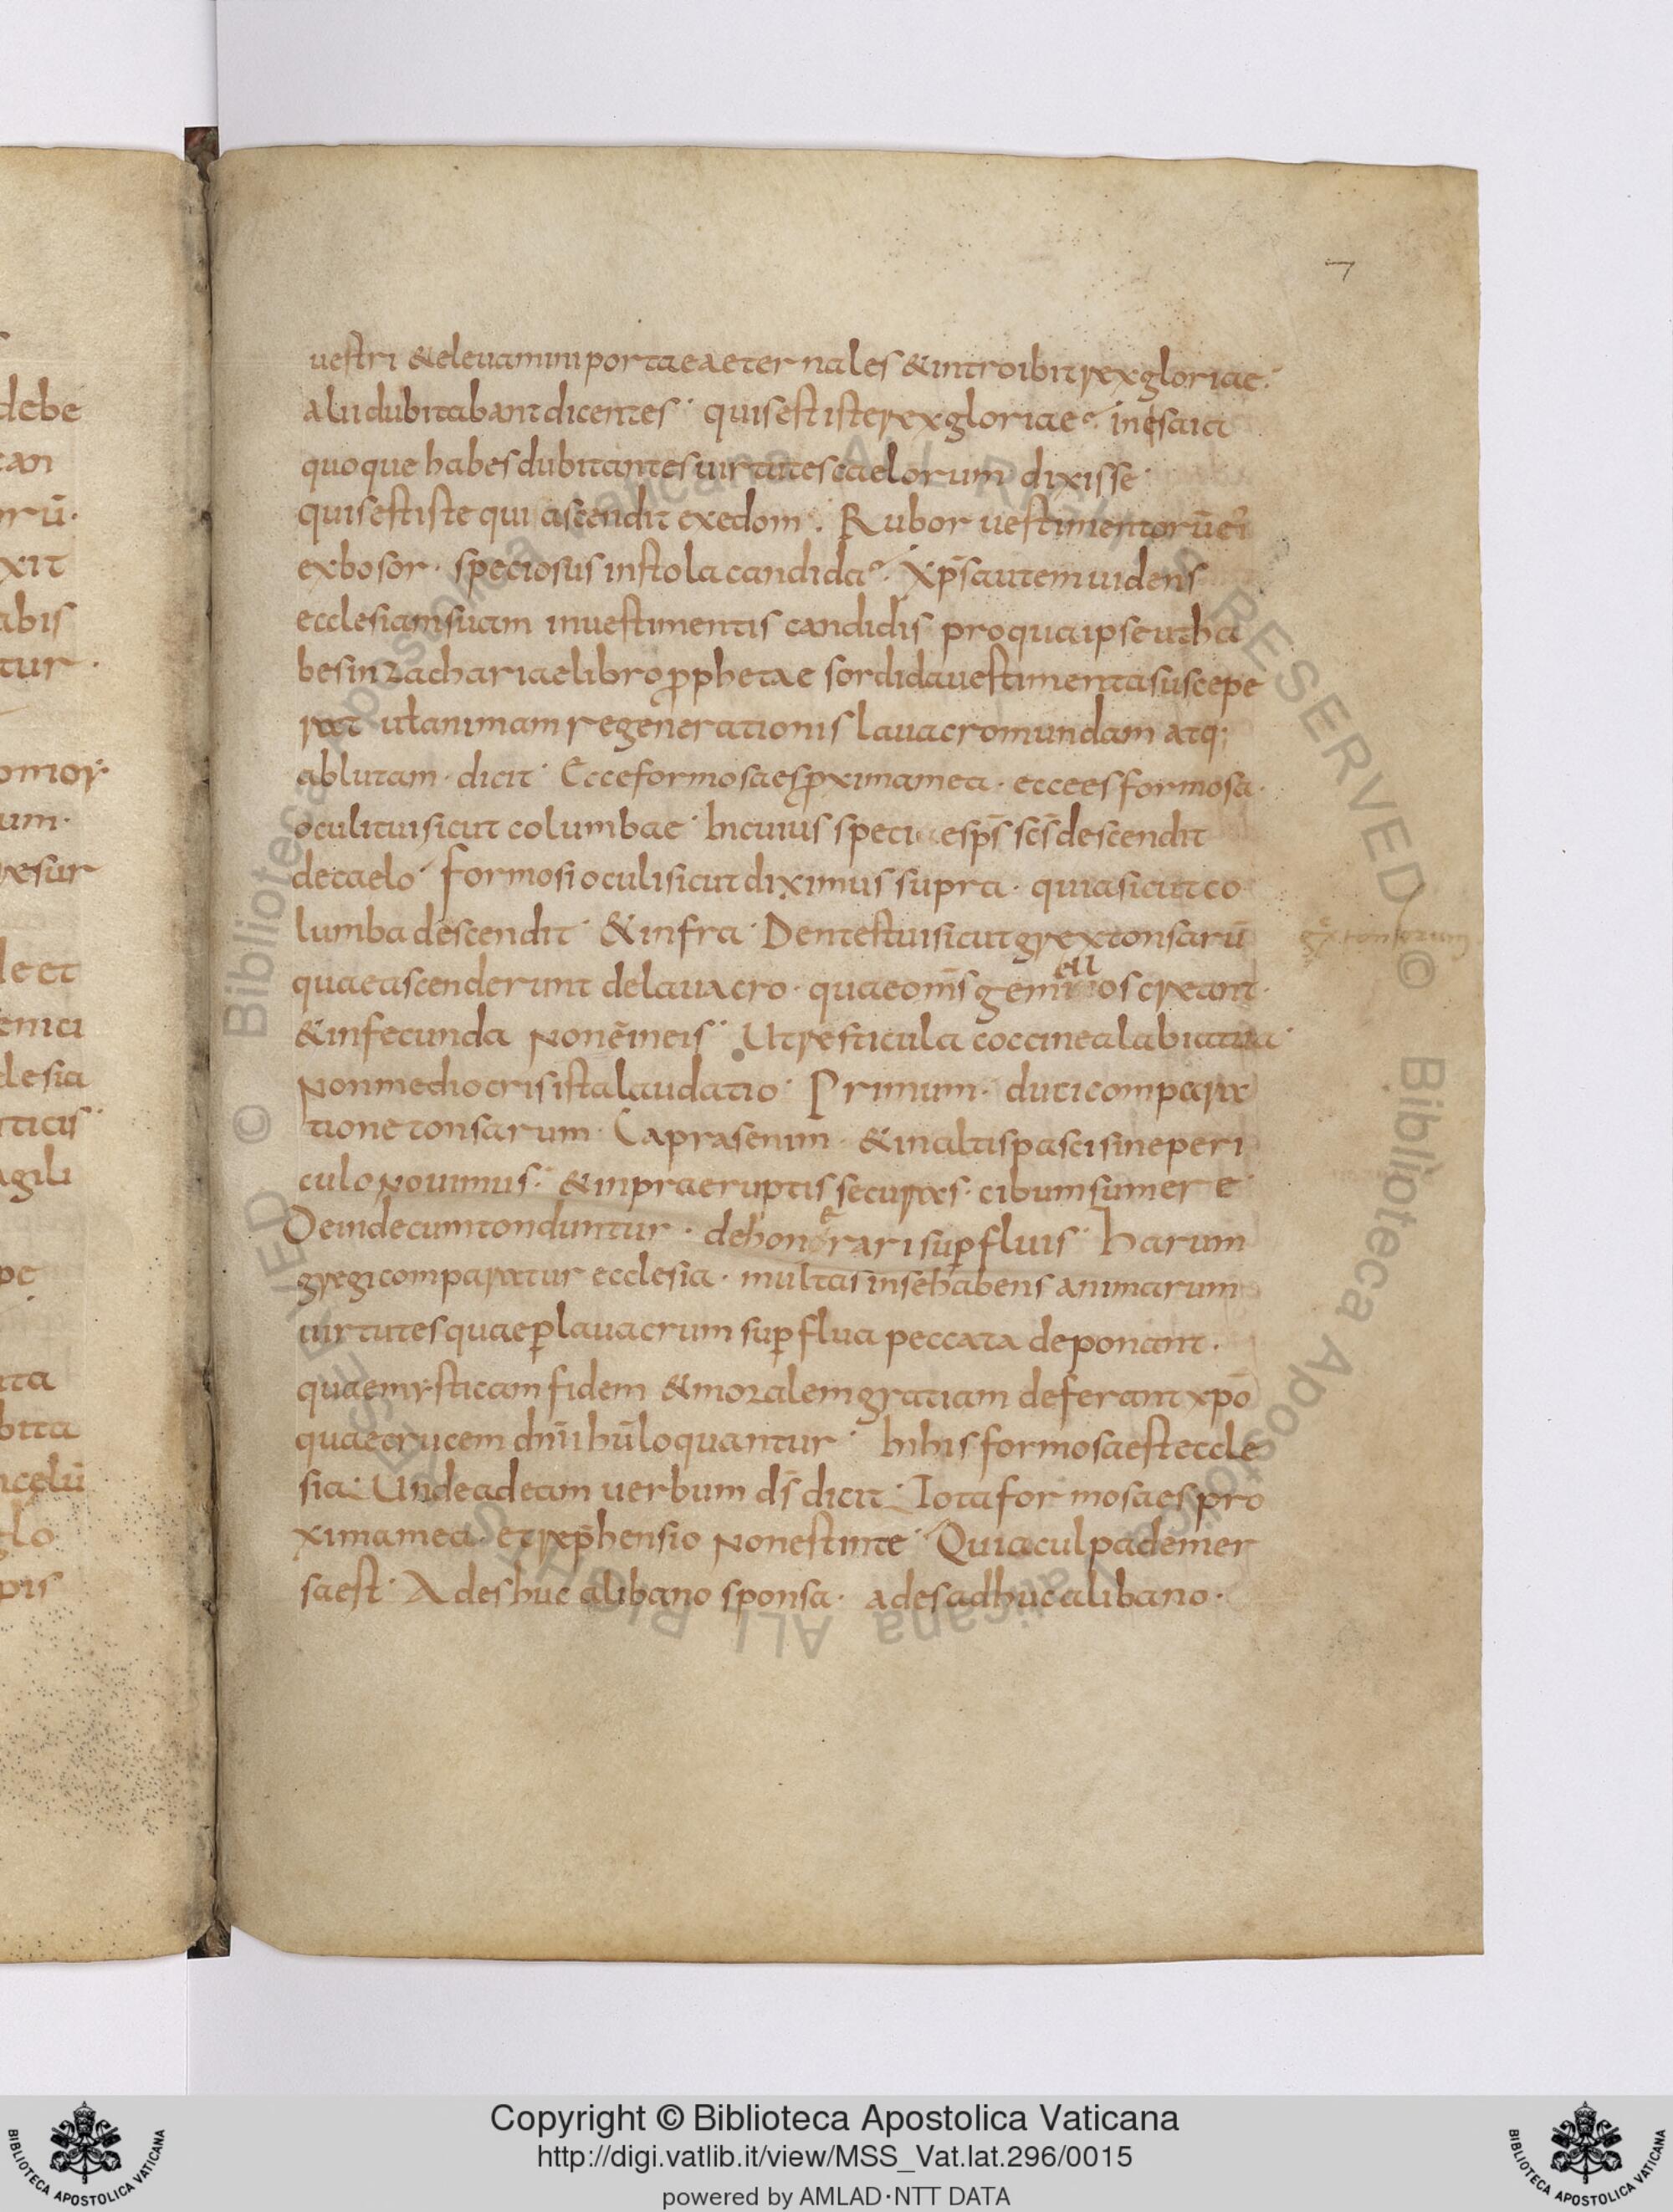 7
uestri & eleuamini portae aeternales & introibit rex gloriae.
alii dubitabant dicentes. quis est iste rex gloriae? in esaia
quoque habes dubitantes uirtutes caelorum dixisse.
quis est iste qui ascendit ex edom. Rubor uestimentorū ei
ex bosor. speciosus in stola candida? Xp̄s autem uidens
ecclesiam suam in uestimentis candidis pro qua ipse ut ha
bes in zachariae libro ꝓphetae sordida uestimenta suscepe
rat ut animam regenerationis lauacro mundam atq;
ablutam. dicit. Ecce formosa es ꝓxima mea. ecce es formosa.
oculi tui sicut columbae. In cuius speciae sp̄s sc̄s descendit
de caelo. formosi oculi sicut diximus supra. quia sicut co
lumba descendit. & infra. Dentes tui sicut grex tonsarū
quae ascenderunt de lauacro. quae om̄s gemellos creant.
& infecunda non ē in eis. Ut resticula coccinea labia tua.
Non mediocris ista laudatio. Primum. dulci compara
tione tonsarum. Capras enim & in altis pasci sine peri
culo nouimus. & in praeruptis securas. cibum sumere.
Deinde cum tonduntur. dehonerari suꝑfluis. harum
gregi comparatur ecclesia. multas in se habens animarum
uirtutes quae ꝑ lauacrum suꝑflua peccata deponant.
quae mysticam fidem & moralem gratiam deferant xp̄o
quae crucem dn̄i ih̄u loquantur. In his formosa est eccle
sia. Unde ad eam uerbum ds̄ dicit. Tota formosa es pro
xima mea. et rep̄hensio non est in te. Quia culpa demer
sa est. Ades huc a libano sponsa. ades adhuc a libano.
debe
an
rū.
xit
abis
tur.
um.
resur
le et
clesia
ticis
agili
pe
ta
bita
glo
pis
© Biblioteca Apostolica Vaticana ALL RIGHTS RESERVED
© Biblioteca Apostolica Vaticana ALL RIGHTS RESERVED
Copyright © Biblioteca Apostolica Vaticana
http://digi.vatlib.it/view/MSS_Vat.lat.296/0015
powered by AMLAD·NTT DATA
BIBLIOTECA APOSTOLICA VATICANA
BIBLIOTECA APOSTOLICA VATICANA